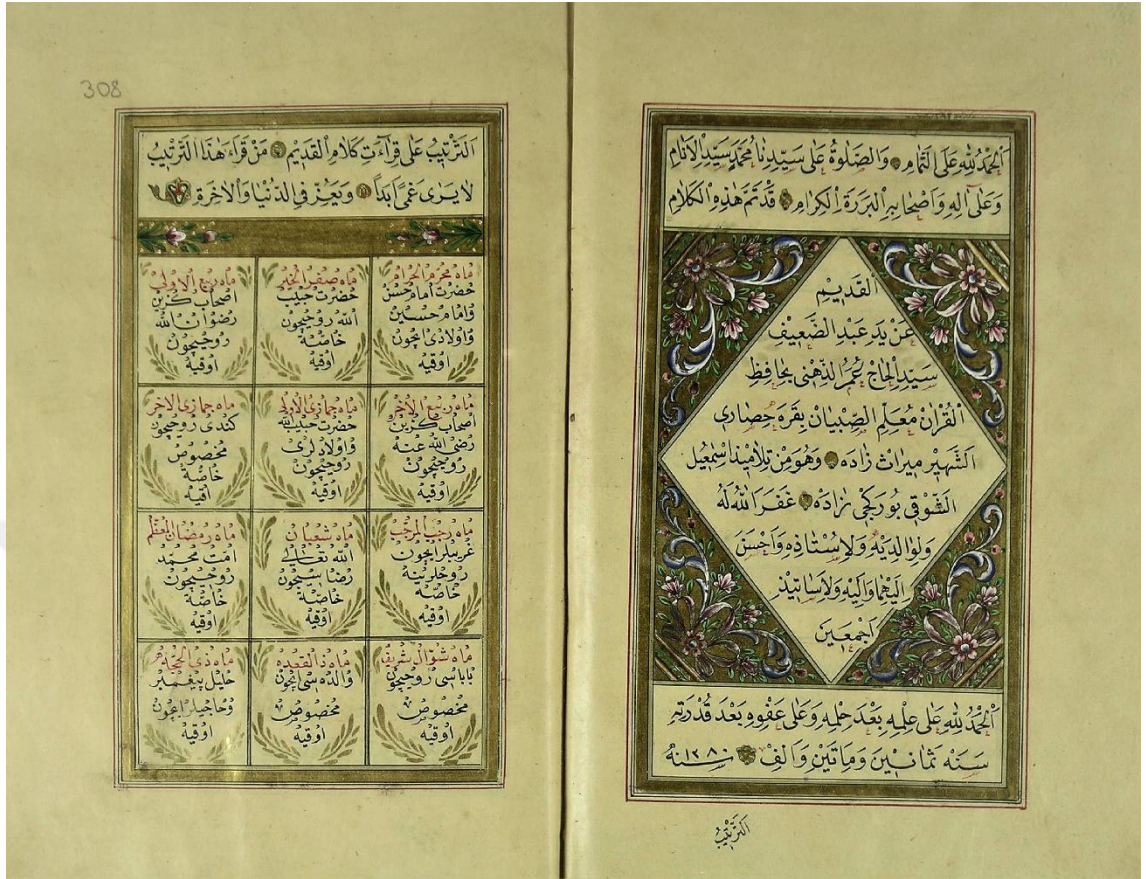 اَلْحَمْدُ لِلّٰهِ عَلَى التَّمَامِ وَالصَّلٰوةُ عَلٰى سَيِّدِنَا مُحَمَّدٍ سَيِّدِ الْاَنَامِ
وَعَلٰى اٰلِهِ وَاَصْحَابِهِ الْبَرَرَةِ الْكِرَامِ قَدْ تَمَّ هٰذِهِ الْكَلَامِ
اَلْقَدِيمِ
عَنْ يَدِ عَبْدِ الضَّعِيفِ
سَيِّدِ الْحَاجْ عُمَرُ الذِّهْنِى بِحَافِظِ
الْقُرْاٰنِ مُعَلِّمِ الصِّبْيَانِ بِقَرَه حِصَارِى
اَلشَّهِيرْ مِيرَاثْ زَادَه وَهُوَ مِنْ تَلَامِيذِ اِسْمٰعِيلَ
الشَّوْقِى بُورَكْجِى زَادَه غَفَرَ اللّٰهُ لَهُ
وَلِوَالِدَيْهِ وَلِاُسْتَاذِهِ وَاَحْسَنَ
اِلَيْهِمَا وَاِلَيْهِ وَلِاَسَاتِيذِ
اَجْمَعِينَ
اَلْحَمْدُ لِلّٰهِ عَلٰى عِلْمِهِ بَعْدَ حِلْمِهِ وَعَلٰى عَفْوِهِ بَعْدَ قُدْرَتِهِ
سَنَه ثَمَانِينَ وَمِاَتَيْنِ وَاَلِفْ سنه ١٢٨٠
اَلتَّرْتِيبُ
308
اَلتَّرْتِيبُ عَلٰى قِرَاٰءَتِ كَلَامِ الْقَدِيمِ مَنْ قَرَاَءَ هٰذَا التَّرْتِيبُ
لَا يَرٰى غَمًّا اَبَدًا وَيَعِزُّ فِى الدُّنْيَا وَالْاٰخِرَةِ
ماه محرم الحرام
حضرت امام حسن
وامام حسين
واولادى ايچون
اوقيه
ماه صفر الخير
حضرت حبيب
الله روحيچون
خاصّة
اوقيه
ماه ربيع الاول
اصحاب كزين
رضوان الله
روحيچون
اوقيه
ماه ربيع الاخر
اصحاب كزين
رضى الله عنه
روحيچون
اوقيه
ماه جمازى الاولى
حضرت حبيب الله
واولادلرى
روحيچون
اوقيه
ماه جمازى الاخر
كندى روحيچون
مخصوص
خاصّة
اوقيه
ماه رجب المرجب
غريبلر ايچون
روحلرينه
خاصّة
اوقيه
ماه شعبان
الله تعالى
رضاسيچون
خاصّة
اوقيه
ماه رمضان المعظم
امت محمد
روحيچون
خاصّة
اوقيه
ماه شوال شريف
باباسى روحيچون
مخصوص
اوقيه
ماه ذالقعده
والده سى ايچون
مخصوص
اوقيه
ماه ذى الحجه
خليل پيغمبر
وحاجيلر ايچون
اوقيه